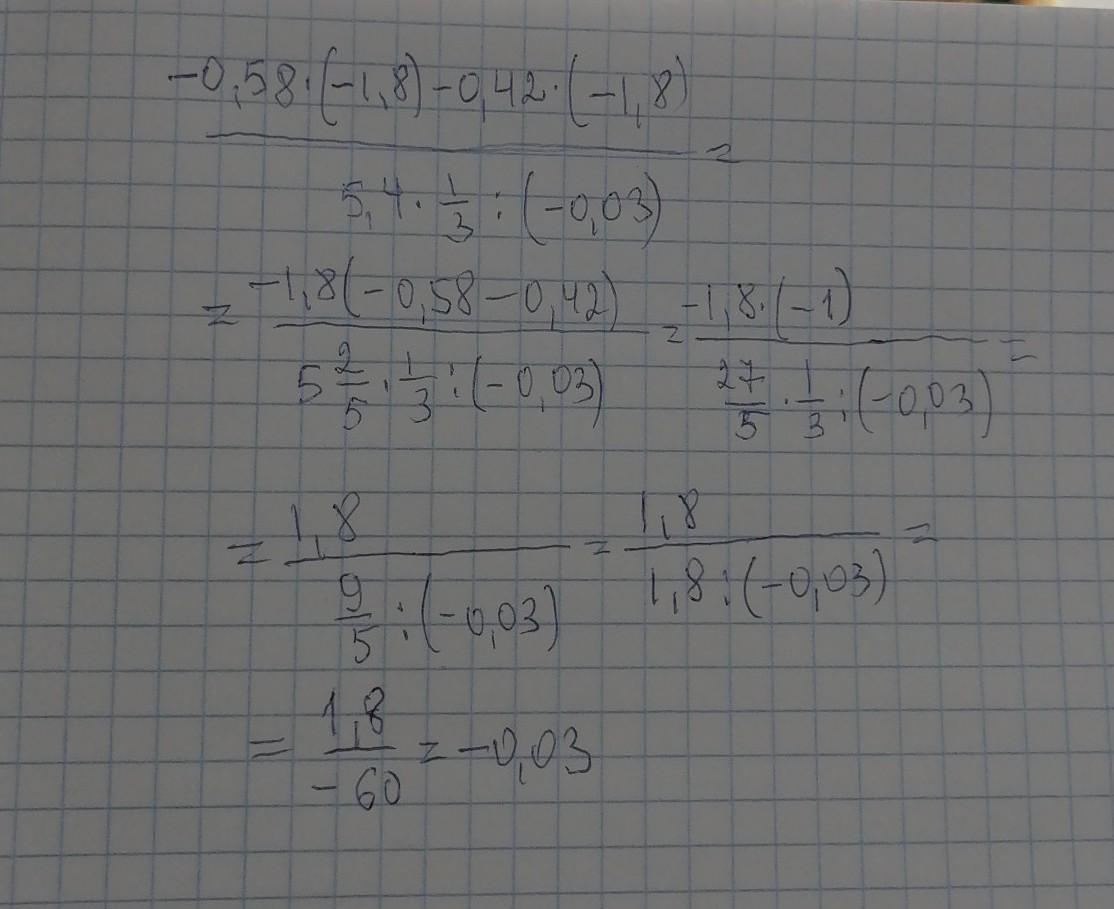 -0,58·(-1,8)-0,42·(-1,8)
=
5,4·1/3:(-0,03)
= -1,8(-0,58-0,42) = -1,8·(-1) =
5 2/5·1/3:(-0,03) 27/5·1/3:(-0,03)
= 1,8 = 1,8 =
9/5:(-0,03) 1,8:(-0,03)
= 1,8/-60 = -0,03